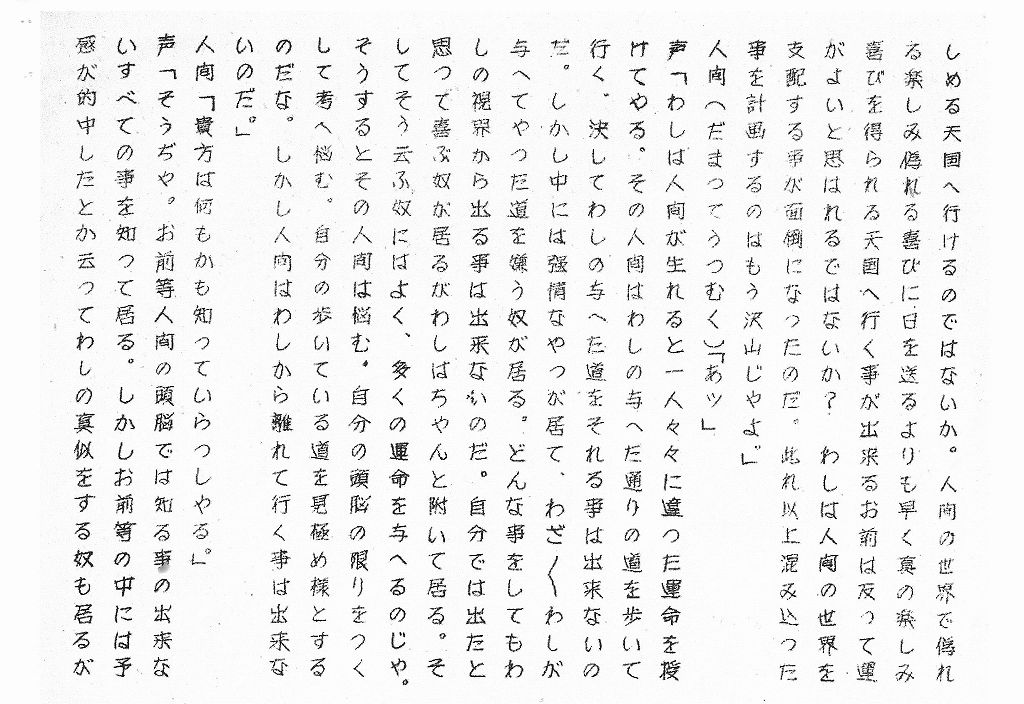 しめる天国へ行けるのではないか。人间の世界で偽れ
る楽しみ偽れる喜びに日を送るよりも早く真の楽しみ
喜びを得られる天国へ行く事が出来るお前は反って運
がよいと思はれるではないか？　わしは人间の世界を
支配する事が面倒になったのだ。此れ以上混み込った
事を計画するのはもう沢山じやよ。」
人间へだまってうつむく）「あッ」
声「わしは人间が生れると一人々々に違つた運命を授
けてやる。その人间はわしの与へた通りの道を歩いて
行く。決してわしの与へた道をそれる事は出来ないの
だ。しかし中には强情なやつが居て、わざ／＼わしが
与へてやつた道を嫌う奴が居る。どんな事をしてもわ
しの視界から出る事は出来ないのだ。自分では出たと
思つて喜ぶ奴が居るがわしはちやんと附いて居る。そ
してそう云ふ奴にはよく、多くの運命を与へるのじや。
そうするとその人间は悩む。自分の頭脳の限りをつく
して考へ悩む。自分の歩いている道を見極め様とする
のだな。しかし人间はわしから離れて行く事は出来な
いのだ。」
人间「貴方は何もかも知っていらつしやる。」
声「そうぢや。お前等人间の頭脳では知る事の出来な
いすべての事を知つて居る。しかしお前等の中には予
感が的中したとか云ってわしの真似をする奴も居るが